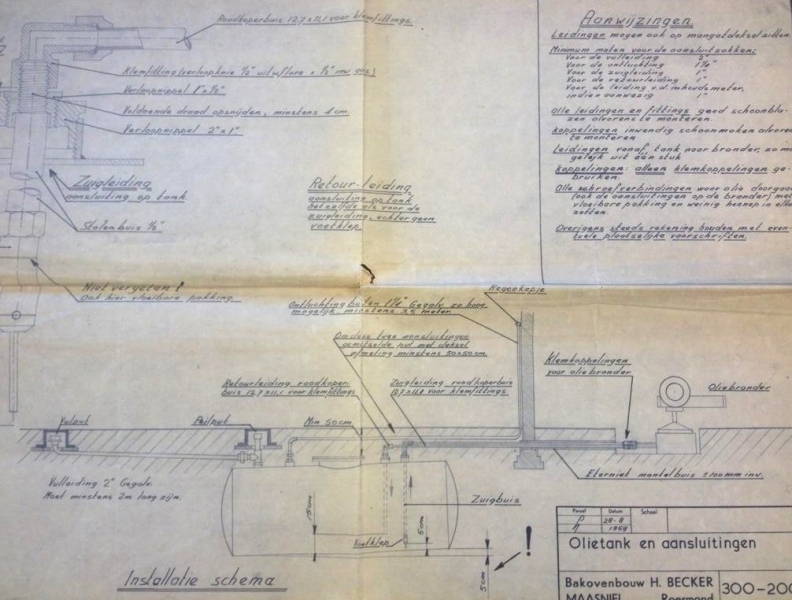 Roodkoperbuis 12,7 x 11,1 voor klemfittings
Klemfitting (verloopknie ½" uitw. flore x ½" inw. gas)
Verloopnippel 1" x ½"
Voldoende draad opsnijden, minstens 4 cm.
Verloopnippel 2" x 1"
Zuigleiding
aansluiting op tank
Stalenbuis ½"
Niet vergeten!
Ook hier vloeibare pakking.
Retour-leiding
aansluiting op tank
hetzelfde als voor de
zuigleiding, echter geen
voetklep.
Aanwijzingen
Leidingen mogen ook op mangatdeksel zitten
Minimum maten voor de aansluitsokken:
Voor de vulleiding 2"
Voor de ontluchting 1¼"
Voor de zuigleiding 1"
Voor de retourleiding 1"
Voor de leiding v.d. inhoudsmeter,
indien aanwezig 1"
Alle leidingen en fittings goed schoonbla-
zen alvorens te monteren.
Koppelingen inwendig schoonmaken alvorens
te monteren.
Leidingen vanaf tank naar brander, zo mo-
gelijk uit één stuk
Koppelingen: alleen klemkoppelingen ge-
bruiken.
Alle schroefverbindingen waar olie doorgaat
(ook de aansluitingen op de brander) met
vloeibare pakking en weinig hennep in elkaar
zetten
Overigens steeds rekening houden met even-
tuele plaatselijke voorschriften.
Regenkapje
Ontluchting buiten 1¼" Gegalv. zo hoog
mogelijk, minstens 3,5 meter
Om deze twee aansluitingen
gemetselde put met deksel
afmeting minstens 50x50cm.
Klemkoppelingen
voor oliebrander
Oliebrander
Retourleiding roodkoper-
buis 12,7 x 11,1 voor klemfittings
Zuigleiding roodkoperbuis
12,7 x 11,1 voor klemfittings
Min 50cm.
Vulput
Peilput
Vulleiding 2" Gegalv.
Moet minstens 2m lang zijn.
Eterniet mantelbuis ±100mm inw.
Zuigbuis
Voetklep
15cm
5cm
5cm
!
Installatie schema
Paraaf Datum Schaal
28-8
1968
Olietank en aansluitingen
Bakovenbouw H. BECKER
MAASNIEL Roermond
300-200